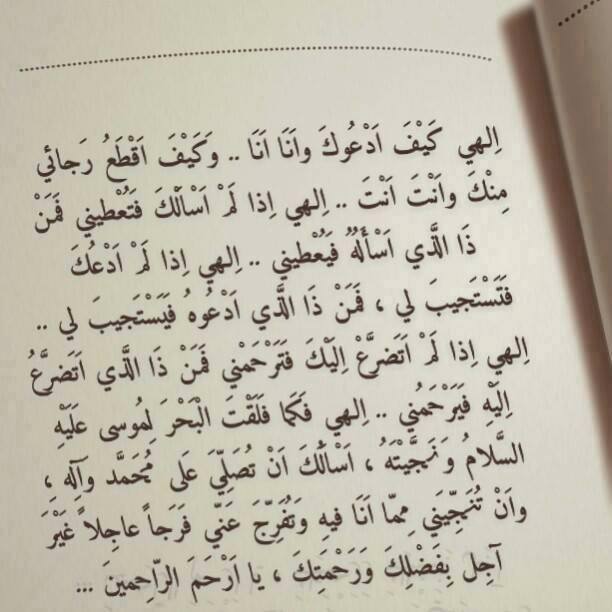 اِلهي كَيْفَ اَدْعُوكَ وَاَنَا اَنَا .. وَكَيْفَ اَقْطَعُ رَجائي
مِنْكَ وَاَنْتَ اَنْتَ .. اِلهي اِذا لَمْ اَسْأَلْكَ فَتُعْطيني فَمَنْ
ذَا الَّذي اَسْأَلُهُ فَيُعْطيني .. اِلهي اِذا لَمْ اَدْعُكَ
فَتَسْتَجيبَ لي ، فَمَنْ ذَا الَّذي اَدْعُوهُ فَيَسْتَجيبَ لي ..
اِلهي اِذا لَمْ اَتَضرَّعْ اِلَيْكَ فَتَرْحَمْني فَمَنْ ذَا الَّذي اَتَضرَّعُ
اِلَيْهِ فَيَرْحَمُني .. اِلهي فَكَما فَلَقْتَ الْبَحْرَ لِمُوسى عَلَيْهِ
السَّلامُ وَنَجَّيْتَهُ ، اَسْأَلُكَ اَنْ تُصَلِّيَ عَلى مُحَمَّد وَآلِهِ ،
وَاَنْ تُنَجِّيَني مِمّا اَنَا فيهِ وَتُفَرِّجَ عَنّي فَرَجاً عاجِلاً غَيْرَ
آجِل بِفَضْلِكَ وَرَحْمَتِكَ ، يا اَرْحَمَ الرّاحِمينَ ...